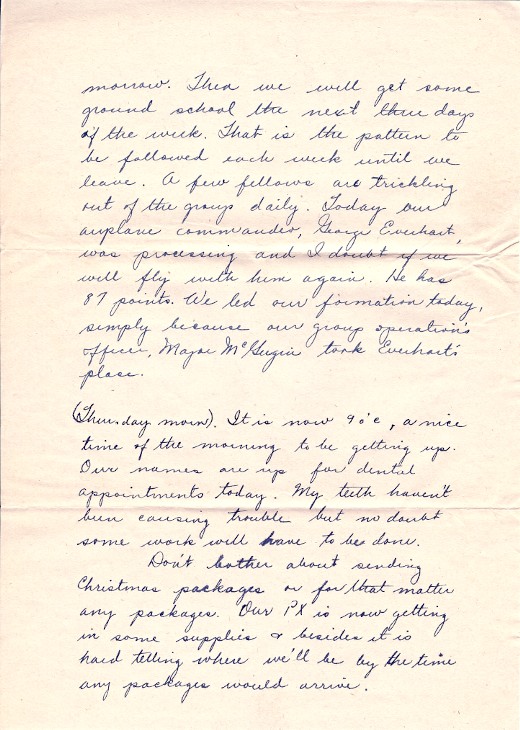 morrow. Then we will get some
ground school the next three days
of the week. That is the pattern to
be followed each week until we
leave. A few fellows are trickling
out of the group daily. Today our
airplane commander, George Everhart,
was processing and I doubt if we
will fly with him again. He has
87 points. We led our formation today,
simply because our group operation's
officer, Major McGugin took Everhart's
place.
(Thursday morn). It is now 9 o'c, a nice
time of the morning to be getting up.
Our names are up for dental
appointments today. My teeth haven't
been causing trouble but no doubt
some work will have to be done.
Don't bother about sending
Christmas packages or for that matter
any packages. Our PX is now getting
in some supplies & besides it is
hard telling where we'll be by the time
any packages would arrive.